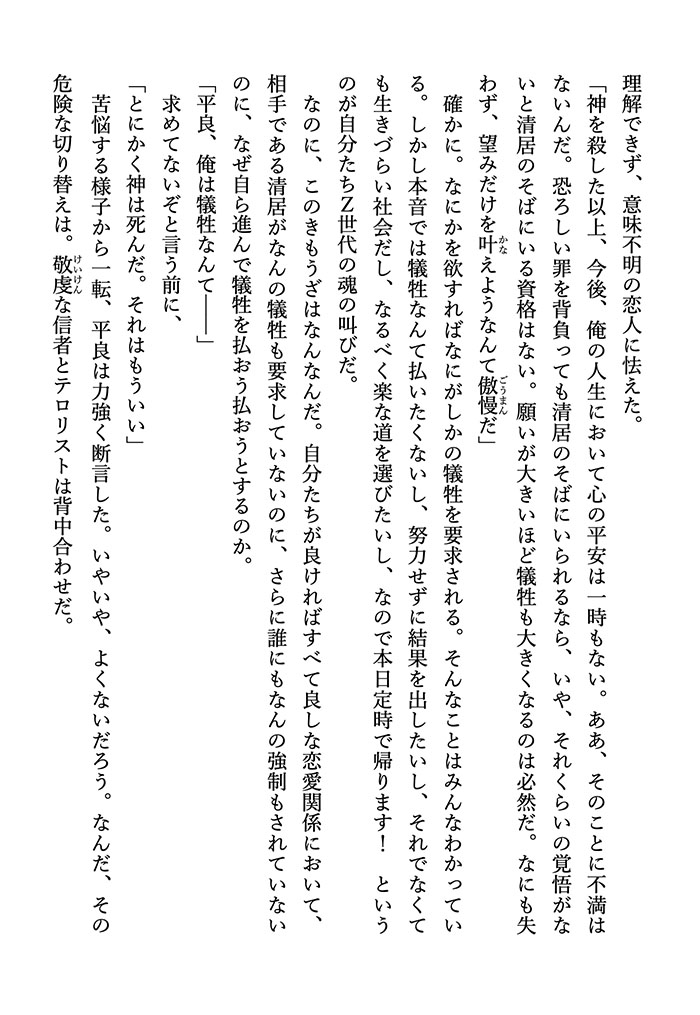 理解できず、意味不明の恋人に怯えた。
「神を殺した以上、今後、俺の人生において心の平安は一時もない。ああ、そのことに不満は
ないんだ。恐ろしい罪を背負っても清居のそばにいられるなら、いや、それくらいの覚悟がな
いと清居のそばにいる資格はない。願いが大きいほど犠牲も大きくなるのは必然だ。なにも失
わず、望みだけを叶えようなんて傲慢だ」
確かに。なにかを欲すればなにがしかの犠牲を要求される。そんなことはみんなわかってい
る。しかし本音では犠牲なんて払いたくないし、努力せずに結果を出したいし、それでなくて
も生きづらい社会だし、なるべく楽な道を選びたいし、なので本日定時で帰ります！　という
のが自分たちＺ世代の魂の叫びだ。
なのに、このきもうざはなんなんだ。自分たちが良ければすべて良しな恋愛関係において、
相手である清居がなんの犠牲も要求していないのに、さらに誰にもなんの強制もされていない
のに、なぜ自ら進んで犠牲を払おう払おうとするのか。
「平良、俺は犠牲なんて――」
求めてないぞと言う前に、
「とにかく神は死んだ。それはもういい」
苦悩する様子から一転、平良は力強く断言した。いやいや、よくないだろう。なんだ、その
危険な切り替えは。敬虔な信者とテロリストは背中合わせだ。